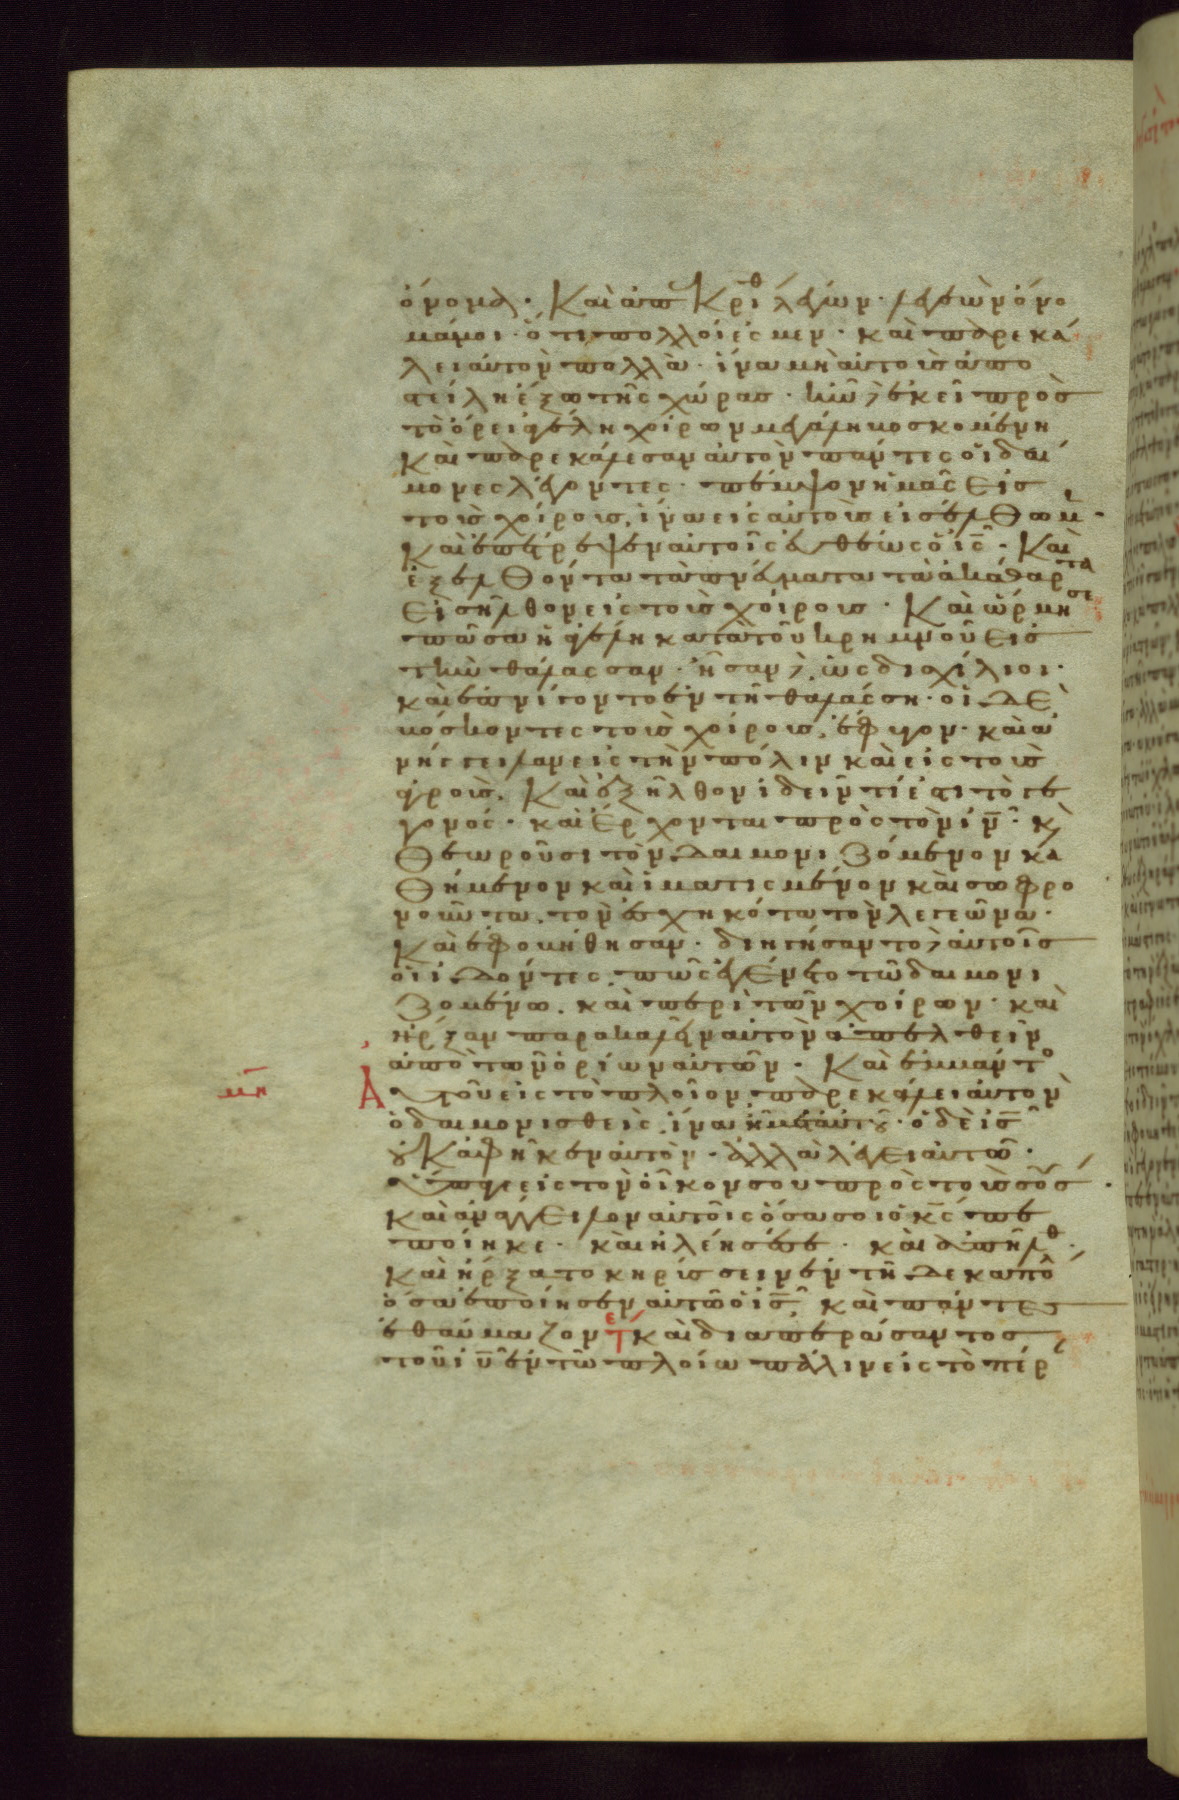 ὄνομά· Καὶ ἀπεκρίθ λέγων· λεγεὼν ὄνο
μά μοι· ὅτι πολλοί ἐσμεν· καὶ παρεκά
λει αὐτὸν πολλὰ· ἵνα μὴ αὐτοὺς ἀπο
στείλη ἔξω τῆς χώρας· ἦν δὲ ἐκεῖ πρὸς
τὸ ὄρει ἀγέλη χοίρων μεγάλη βοσκομένη
Καὶ παρεκάλεσαν αὐτὸν πάντες οἱ δαί
μονες λέγοντες· πέμψον ἡμᾶς εἰς
τοὺς χοίρους, ἵνα εἰς αὐτοὺς εἰσέλθωμ·
Καὶ ἐπέτρεψεν αὐτοῖς εὐθέως ὁ ις· Καὶ
ἐξελθόντα τὰ πνεύματα τὰ ἀκάθαρτα
εἰσῆλθον εἰς τοὺς χοίρους· Καὶ ὥρμησε
πᾶσα ἡ ἀγέλη κατὰ τοῦ κρημνοῦ εἰς
τὴν θάλασσαν· ἦσαν δὲ ὡς δισχίλιοι·
καὶ ἐπνίγοντο ἐν τῆ θαλάσση· οἱ δὲ
βόσκοντες τοὺς χοίρους, ἔφυγον· καὶ ἀ
νήγγειλαν εἰς τὴν πόλιν καὶ εἰς τοὺς
ἀγρούς. Καὶ ἐξῆλθον ἰδεῖν τί ἐστι τὸ γε
γονός· καὶ ἔρχονται πρὸς τὸν ιν· κ
θεωροῦσι τὸν δαιμονιζόμενον κα
θήμενον καὶ ἱματισμένον καὶ σωφρο
νοῦντα, τὸν ἐσχηκότα τὸν λεγεῶνα·
Καὶ ἐφοβήθησαν· διηγήσαντο δὲ αὐτοῖς
οἱ ἰδόντες, πῶς ἐγένετο τῶ δαιμονι
ζομένω, καὶ περὶ τῶν χοίρων· καὶ
ἤρξαν παρακαλεῖν αὐτὸν ἀπελθεῖν
ἀπὸ τῶν ὁρίων αὐτῶν· Καὶ ἐμβάντο
μη Αὐτοῦ εἰς τὸ πλοῖον, παρεκάλει αὐτὸν
ὁ δαιμονισθεὶς, ἵνα ἦ μετ αὐτοῦ· ὁ δὲ ις
οὐκ ἀφῆκεν αὐτόν· ἀλλὰ λέγει αὐτῶ·
ὕπαγε εἰς τὸν οἶκον σου πρὸς τοὺς σοὺς
καὶ ἀνάγγειλον αὐτοῖς ὅσα σοι ὁ κς πε
ποίηκε· καὶ ἠλέησέ σε· καὶ ἀπῆλθ·
Καὶ ἤρξατο κηρύσσειν ἐν τῆ δεκαπόλ
ὅσα ἐποίησεν αὐτῶ ὁ ις, καὶ πάντες
ἐθαύμαζον τε καὶ διαπεράσαντος
τοῦ ιυ ἐν τῶ πλοίω πάλιν εἰς τὸ πέρ